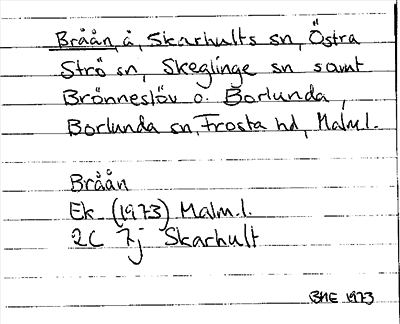 Bråån, å, Skarhults sn, Östra
Strö sn, Skeglinge sn samt
Brönneslöv o. Borlunda,
Borlunda sn, Frosta hd, Malm.l.
Bråån
Ek. (1973) Malm.l.
2C 7j Skarhult
BHE 1973